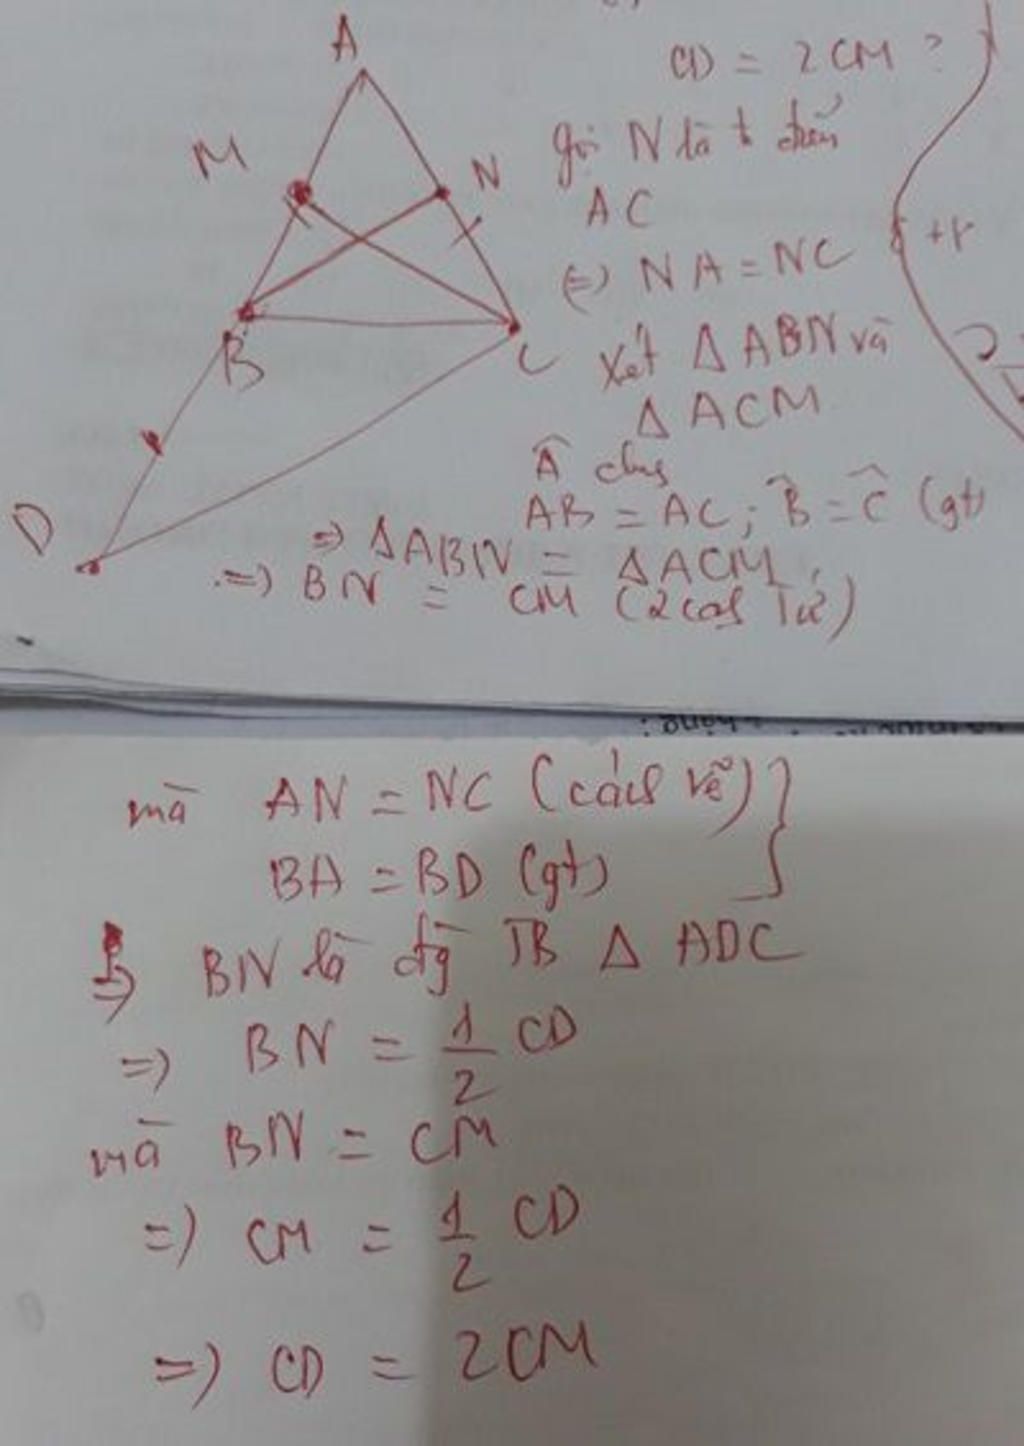 A
M
N
B
C
D
CD = 2CM ?
gọi N là t điểm
AC
=) NA = NC
xét Δ ABN và
Δ ACM
Â chung
AB = AC; B̂ = Ĉ (gt)
=) ΔABN = ΔACM
=) BN = CM (2 cạnh Tứ)
mà AN = NC (cách vẽ)
BA = BD (gt)
=) BN là đg TB Δ ADC
=) BN = 1/2 CD
mà BN = CM
=) CM = 1/2 CD
=) CD = 2CM